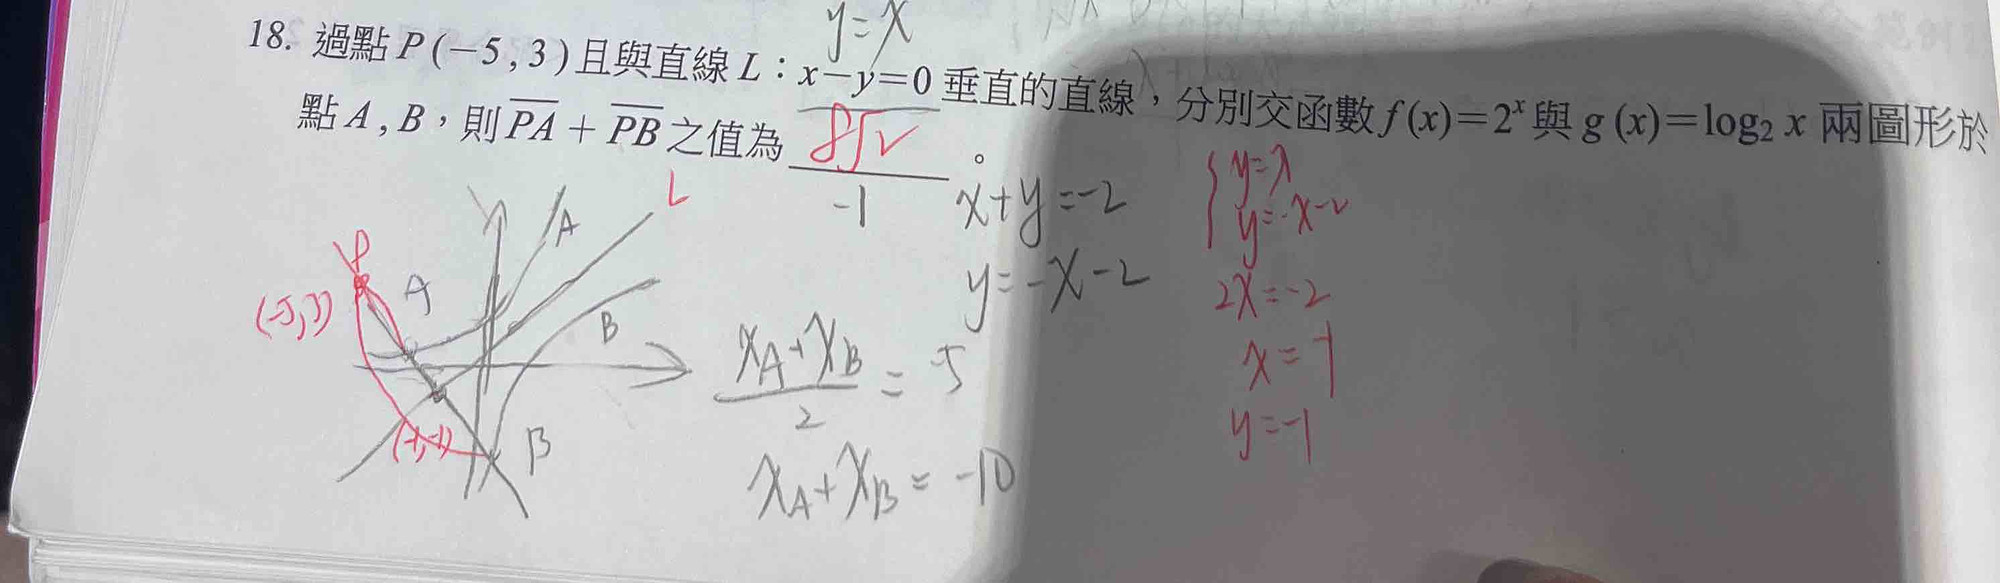 y=x
18. 過點 P(-5,3)且與直線 L：x-y=0 垂直的直線，分別交函數 f(x)=2ˣ 與 g(x)=log₂ x 兩圖形於
點 A,B，則 PA + PB 之值為 8√2 。
-1
x+y=-2
y=-x-2
y=x
y=-x-2
2x=-2
x=-1
y=-1
L
A
P
(-5,3)
A
B
(-1,-1)
B
(x_A+x_B)/2 = -5
x_A+x_B = -10